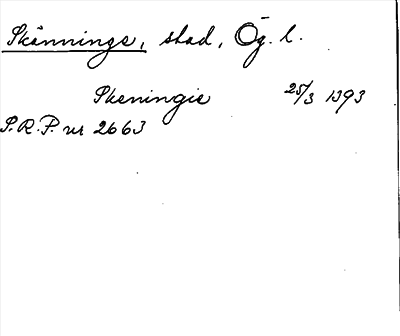 Skänninge, stad, Ög. l.
Skeningie 25/3 1393
S.R.P. nr 2663